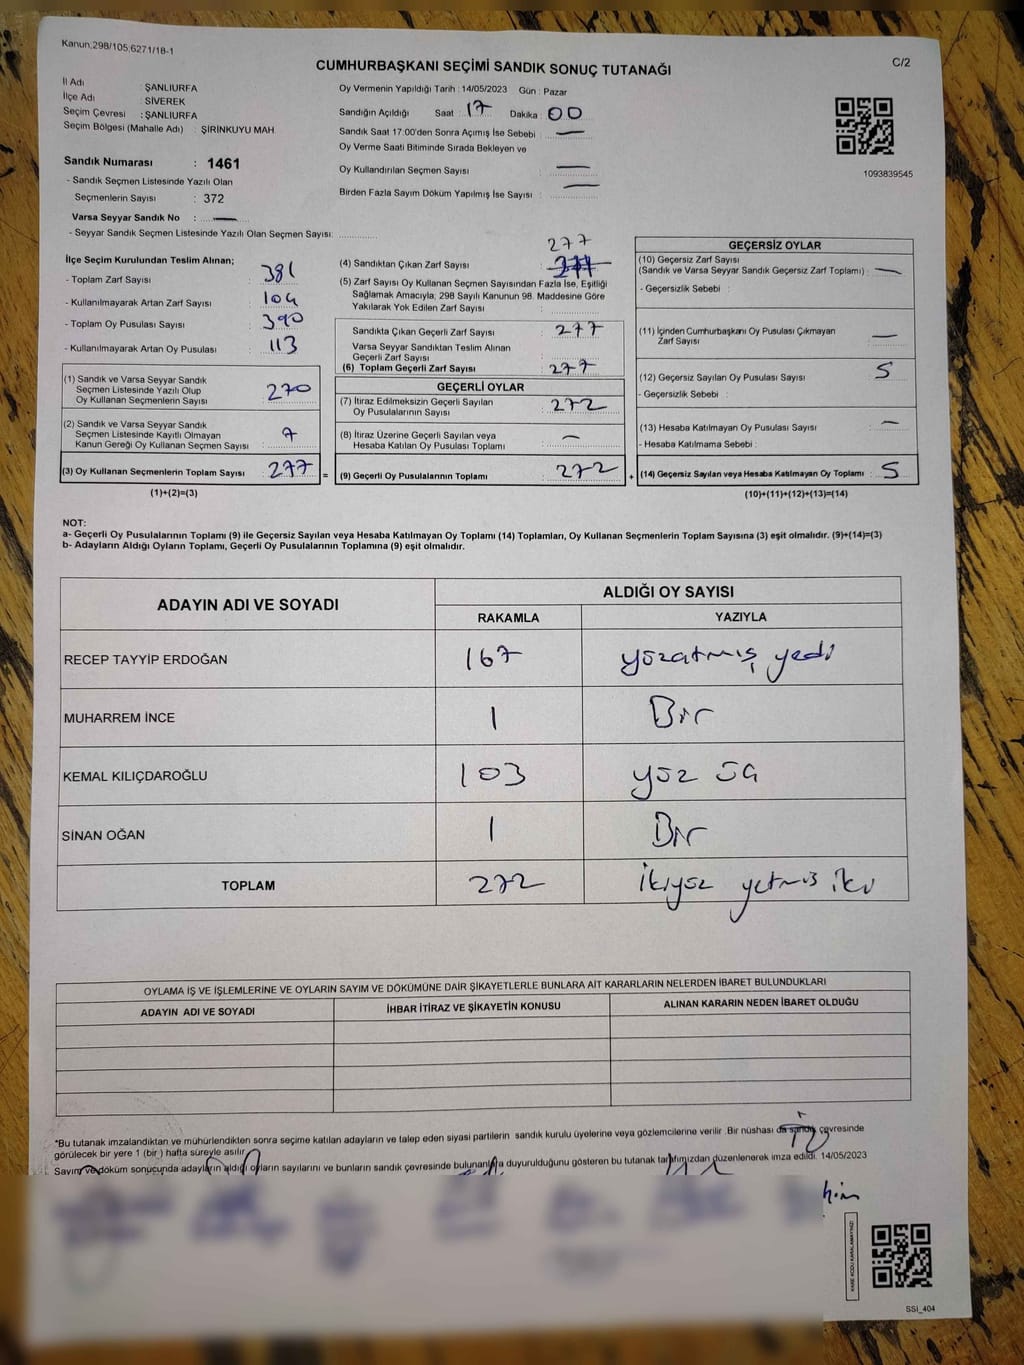 Kanun,298/105,6271/18-1
C/2
CUMHURBAŞKANI SEÇİMİ SANDIK SONUÇ TUTANAĞI
İl Adı ŞANLIURFA
İlçe Adı : SİVEREK
Seçim Çevresi : ŞANLIURFA
Seçim Bölgesi (Mahalle Adı) : ŞİRİNKUYU MAH.
Oy Vermenin Yapıldığı Tarih : 14/05/2023 Gün : Pazar
Sandığın Açıldığı Saat : 17 Dakika : 00
Sandık Saat 17:00'den Sonra Açımış İse Sebebi : —
Oy Verme Saati Bitiminde Sırada Bekleyen ve
Oy Kullandırılan Seçmen Sayısı : —
Birden Fazla Sayım Döküm Yapılmış İse Sayısı : —
1093839545
Sandık Numarası : 1461
- Sandık Seçmen Listesinde Yazılı Olan
Seçmenlerin Sayısı : 372
Varsa Seyyar Sandık No : —
- Seyyar Sandık Seçmen Listesinde Yazılı Olan Seçmen Sayısı:
İlçe Seçim Kurulundan Teslim Alınan;
- Toplam Zarf Sayısı : 381
- Kullanılmayarak Artan Zarf Sayısı : 104
- Toplam Oy Pusulası Sayısı : 390
- Kullanılmayarak Artan Oy Pusulası : 113
(1) Sandık ve Varsa Seyyar Sandık
Seçmen Listesinde Yazılı Olup
Oy Kullanan Seçmenlerin Sayısı : 270
(2) Sandık ve Varsa Seyyar Sandık
Seçmen Listesinde Kayıtlı Olmayan
Kanun Gereği Oy Kullanan Seçmen Sayısı : 7
(3) Oy Kullanan Seçmenlerin Toplam Sayısı : 277 =
(1)+(2)=(3)
277
(4) Sandıktan Çıkan Zarf Sayısı
(5) Zarf Sayısı Oy Kullanan Seçmen Sayısından Fazla İse, Eşitliği
Sağlamak Amacıyla; 298 Sayılı Kanunun 98. Maddesine Göre
Yakılarak Yok Edilen Zarf Sayısı :
Sandıkta Çıkan Geçerli Zarf Sayısı : 277
Varsa Seyyar Sandıktan Teslim Alınan
Geçerli Zarf Sayısı :
(6) Toplam Geçerli Zarf Sayısı : 277
GEÇERLİ OYLAR
(7) İtiraz Edilmeksizin Geçerli Sayılan
Oy Pusulalarının Sayısı : 272
(8) İtiraz Üzerine Geçerli Sayılan veya
Hesaba Katılan Oy Pusulası Toplamı : —
(9) Geçerli Oy Pusulalarının Toplamı : 272 +
GEÇERSİZ OYLAR
(10) Geçersiz Zarf Sayısı
(Sandık ve Varsa Seyyar Sandık Geçersiz Zarf Toplamı) : —
- Geçersizlik Sebebi :
(11) İçinden Cumhurbaşkanı Oy Pusulası Çıkmayan
Zarf Sayısı : —
(12) Geçersiz Sayılan Oy Pusulası Sayısı : 5
- Geçersizlik Sebebi :
(13) Hesaba Katılmayan Oy Pusulası Sayısı : —
- Hesaba Katılmama Sebebi :
(14) Geçersiz Sayılan veya Hesaba Katılmayan Oy Toplamı : 5
(10)+(11)+(12)+(13)=(14)
NOT:
a- Geçerli Oy Pusulalarının Toplamı (9) ile Geçersiz Sayılan veya Hesaba Katılmayan Oy Toplamı (14) Toplamları, Oy Kullanan Seçmenlerin Toplam Sayısına (3) eşit olmalıdır. (9)+(14)=(3)
b- Adayların Aldığı Oyların Toplamı, Geçerli Oy Pusulalarının Toplamına (9) eşit olmalıdır.
ADAYIN ADI VE SOYADI
ALDIĞI OY SAYISI
RAKAMLA YAZIYLA
RECEP TAYYİP ERDOĞAN 167 yüzatmış yedi
MUHARREM İNCE 1 Bir
KEMAL KILIÇDAROĞLU 103 yüz üç
SİNAN OĞAN 1 Bir
TOPLAM 272 İkiyüz yetmiş iki
OYLAMA İŞ VE İŞLEMLERİNE VE OYLARIN SAYIM VE DÖKÜMÜNE DAİR ŞİKAYETLERLE BUNLARA AİT KARARLARIN NELERDEN İBARET BULUNDUKLARI
ADAYIN ADI VE SOYADI İHBAR İTİRAZ VE ŞİKAYETİN KONUSU ALINAN KARARIN NEDEN İBARET OLDUĞU
*Bu tutanak imzalandıktan ve mühürlendikten sonra seçime katılan adayların ve talep eden siyasi partilerin sandık kurulu üyelerine veya gözlemcilerine verilir. Bir nüshası da sandık çevresinde
görülecek bir yere 1 (bir ) hafta süreyle asılır
Sayım ve döküm sonucunda adayların aldığı oyların sayılarını ve bunların sandık çevresinde bulunanlara duyurulduğunu gösteren bu tutanak tarafımızdan düzenlenerek imza edildi. 14/05/2023
SSİ_404